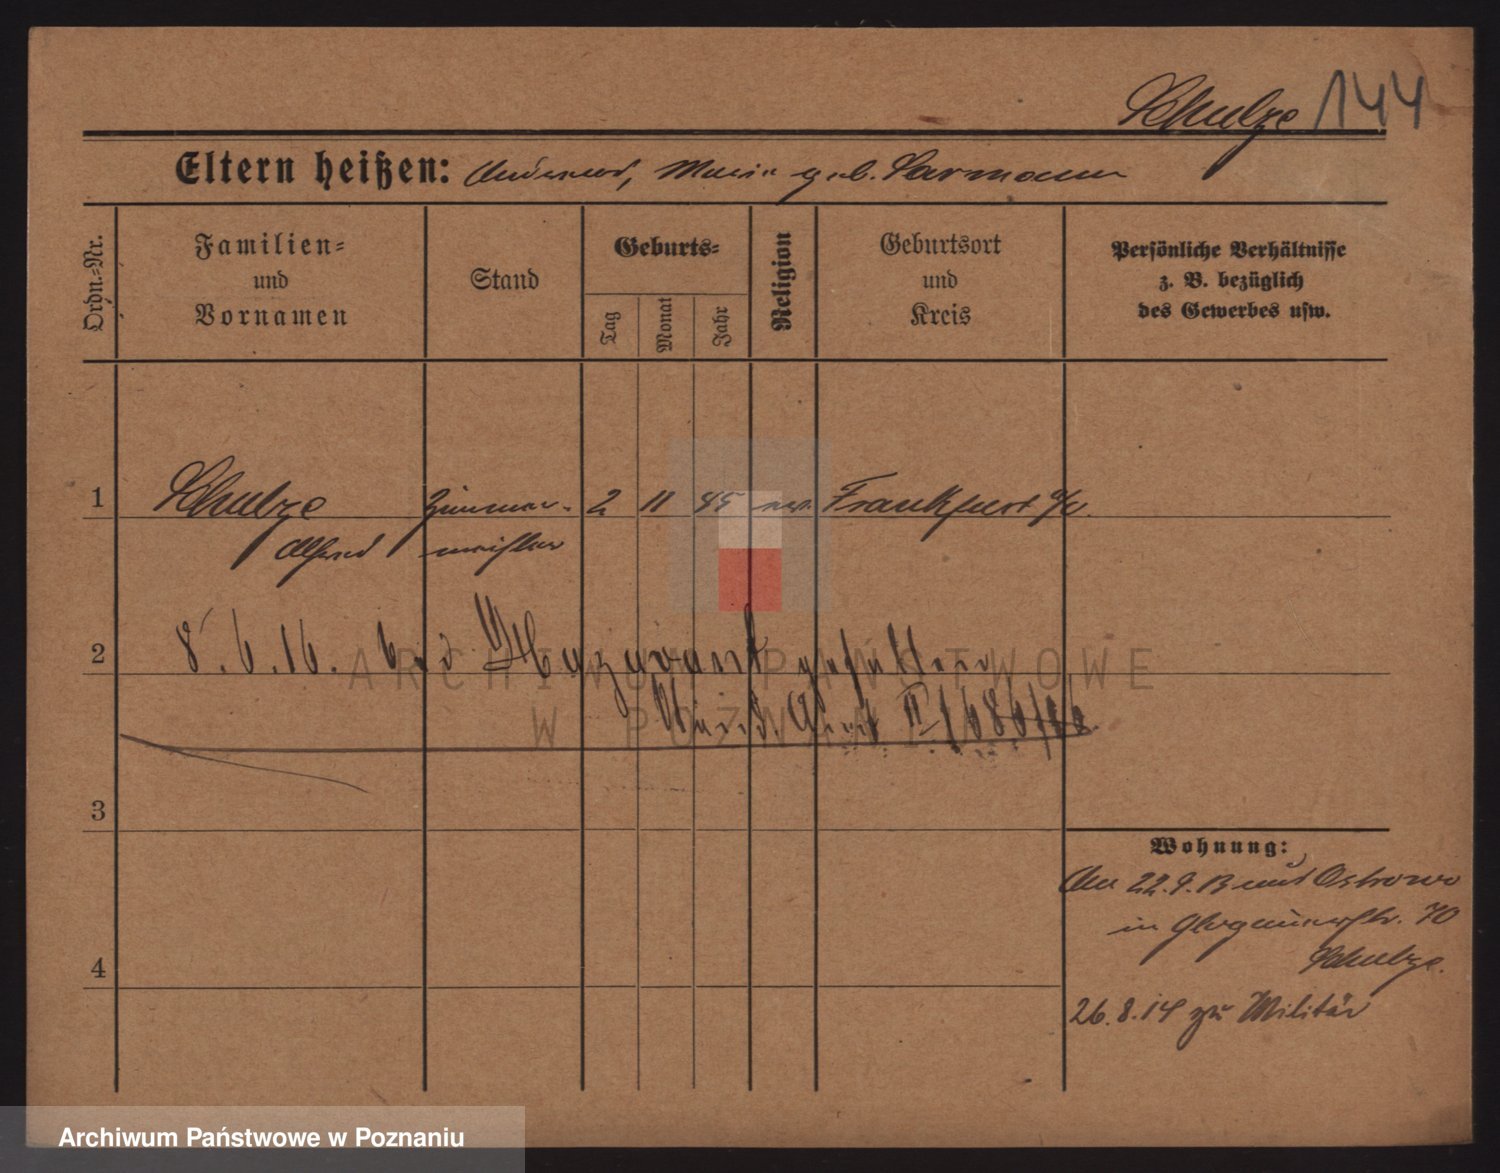 Schulze 144
Eltern heißen: Marie geb.
Ordn.-Nr.
Familien-
und
Vornamen
Stand
Geburts-
Tag
Monat
Jahr
Religion
Geburtsort
und
Kreis
Persönliche Verhältnisse
z. B. bezüglich
des Gewerbes usw.
1 Schulze Zimmer- 2 11 ev. Frankfurt a/O.
Alfred meister
2 8.6.16. bei gefallen
II/686/16
3
4
Wohnung:
22.9.13 aus Ostrowo
in Glogauerstr. 70
Schulze.
26.8.14 zu Militär
ARCHIWUM PAŃSTWOWE
W POZNANIU
Archiwum Państwowe w Poznaniu